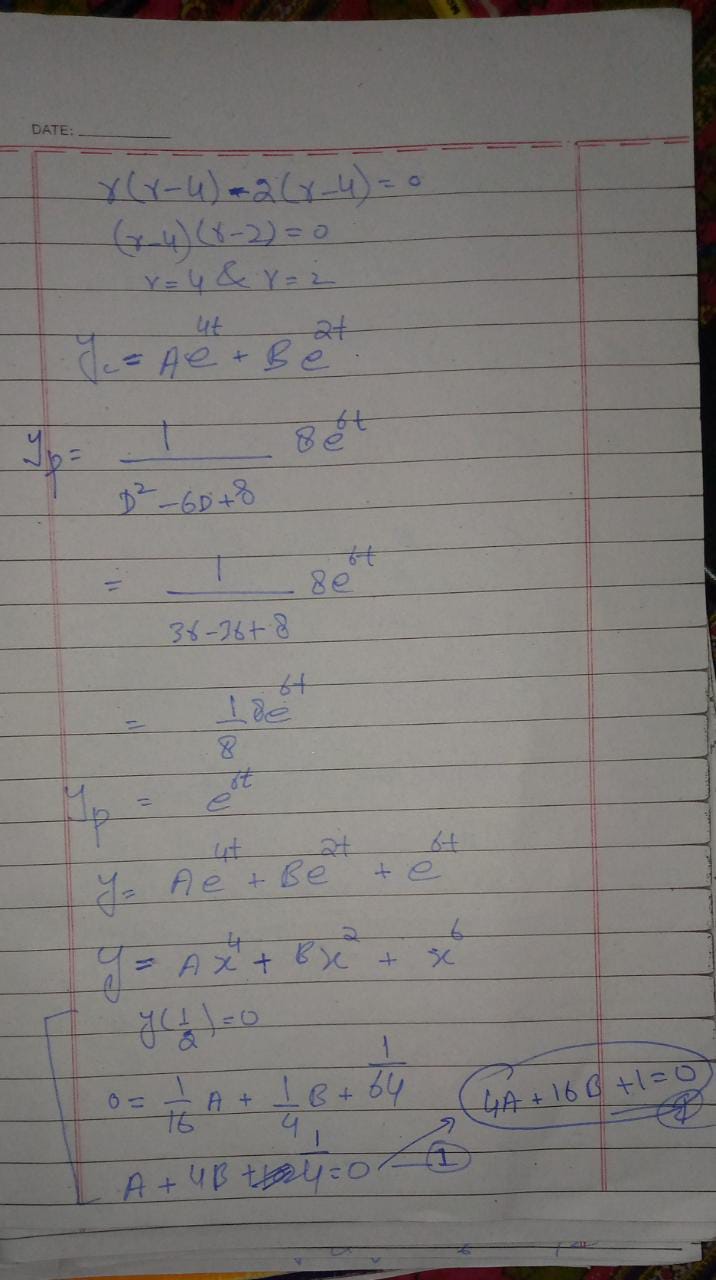 DATE:
r(r-4)-2(r-4)=0
(r-4)(r-2)=0
r=4 & r=2
y_c = Ae^{4t} + Be^{2t}
y_p = \frac{1}{D^2-6D+8} 8e^{6t}
= \frac{1}{36-36+8} 8e^{6t}
= \frac{1}{8} 8e^{6t}
y_p = e^{6t}
y = Ae^{4t} + Be^{2t} + e^{6t}
y = Ax^4 + Bx^2 + x^6
y(\frac{1}{2})=0
0 = \frac{1}{16}A + \frac{1}{4}B + \frac{1}{64}
4A+16B+1=0 ①
A+4B+\frac{1}{4}=0 — ①